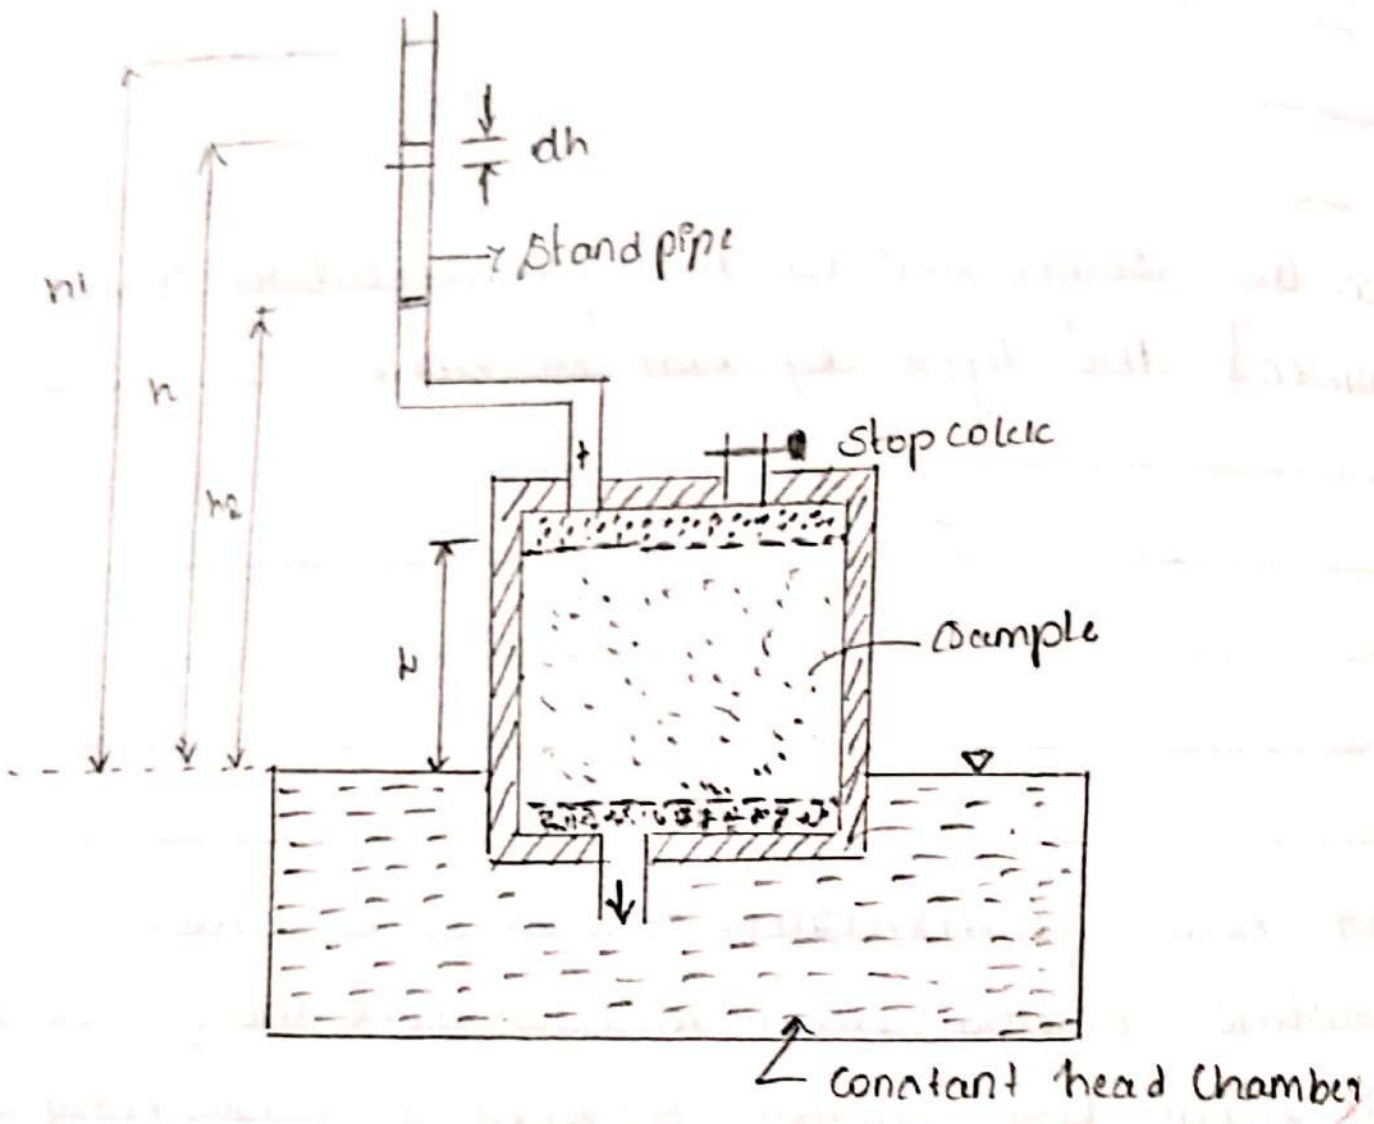 dh
Stand pipe
h1
h
Stop cock
h2
Sample
L
constant head Chamber